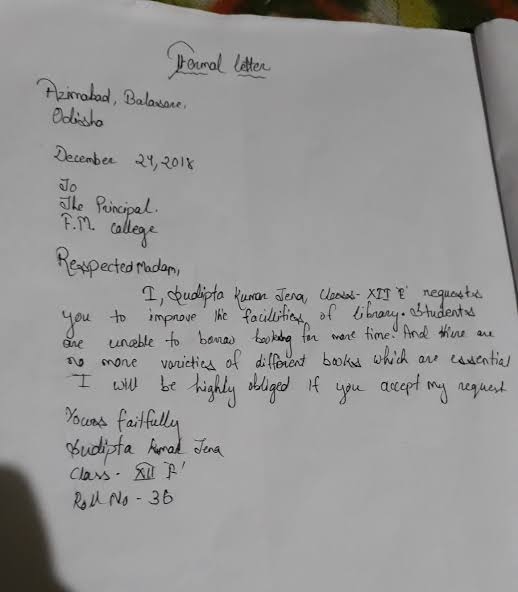 Formal letter
Azimabad, Balasore,
Odisha
December 24, 2018
To
The Principal.
F.M. college
Respected Madam,
I, Sudipta Kumar Jena, Class- XII 'E' requests
you to improve the facilities of library. Students
are unable to borrow for more time. And there are
no more varieties of different books which are essential
I will be highly obliged If you accept my request
Yours faithfully
Sudipta Kumar Jena
Class - XII
Roll No - 36